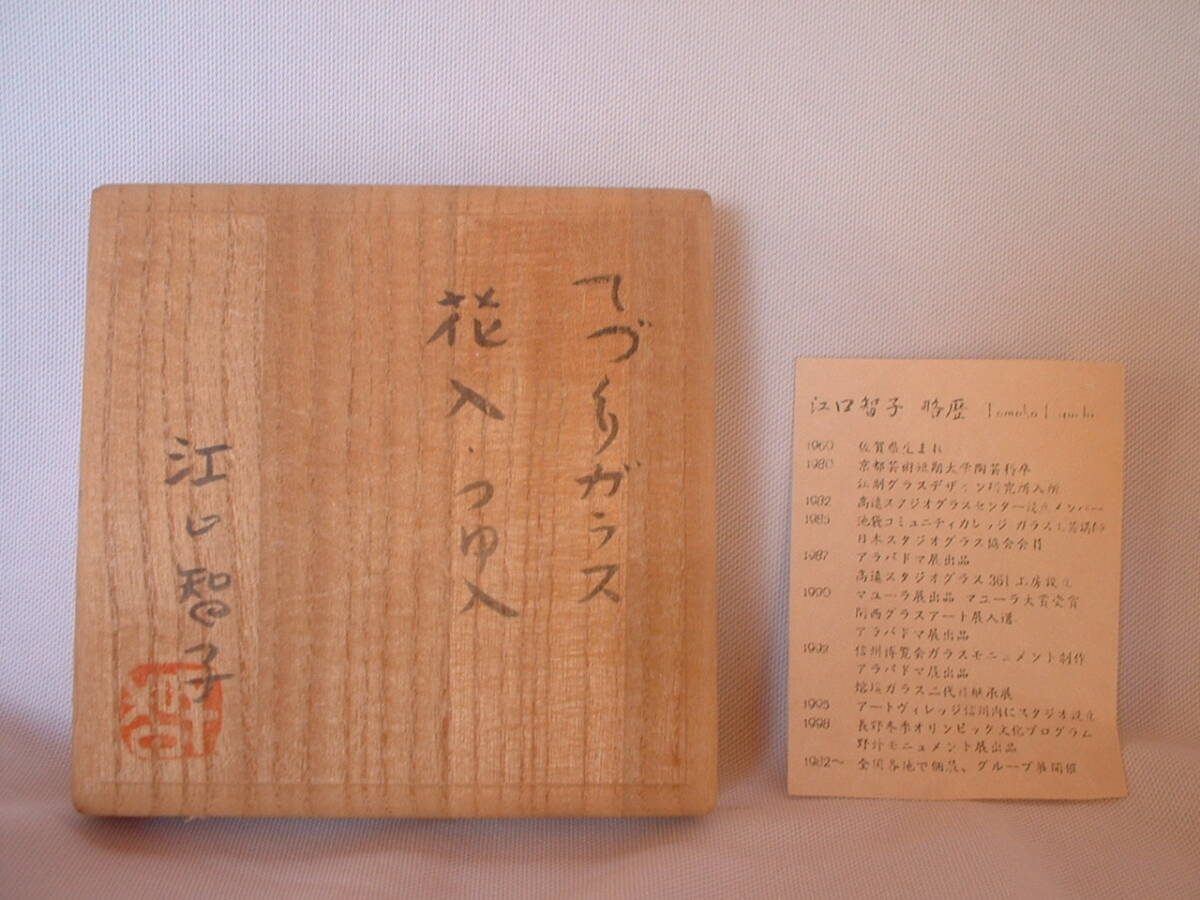 てづくりガラス
花入・つゆ入
江口智子
智
江口智子 略歴 Tomoko Eguchi
1960 佐賀県生まれ
1980 京都芸術短期大学陶芸科卒
江副グラスデザイン研究所入所
1982 高遠スタジオグラスセンター設立メンバー
1985 池袋コミュニティカレッジ ガラス工芸講師
日本スタジオグラス協会会員
1987 アラバドマ展出品
高遠スタジオグラス361工房設立
1990 マユーラ展出品 マユーラ大賞受賞
関西グラスアート展入選
アラバドマ展出品
信州博覧会ガラスモニュメント制作
アラバドマ展出品
ガラス二代目継承展
1995 アートヴィレッジ信州内にスタジオ設立
1998 長野冬季オリンピック文化プログラム
野外モニュメント展出品
1982〜 全国各地で個展、グループ展開催